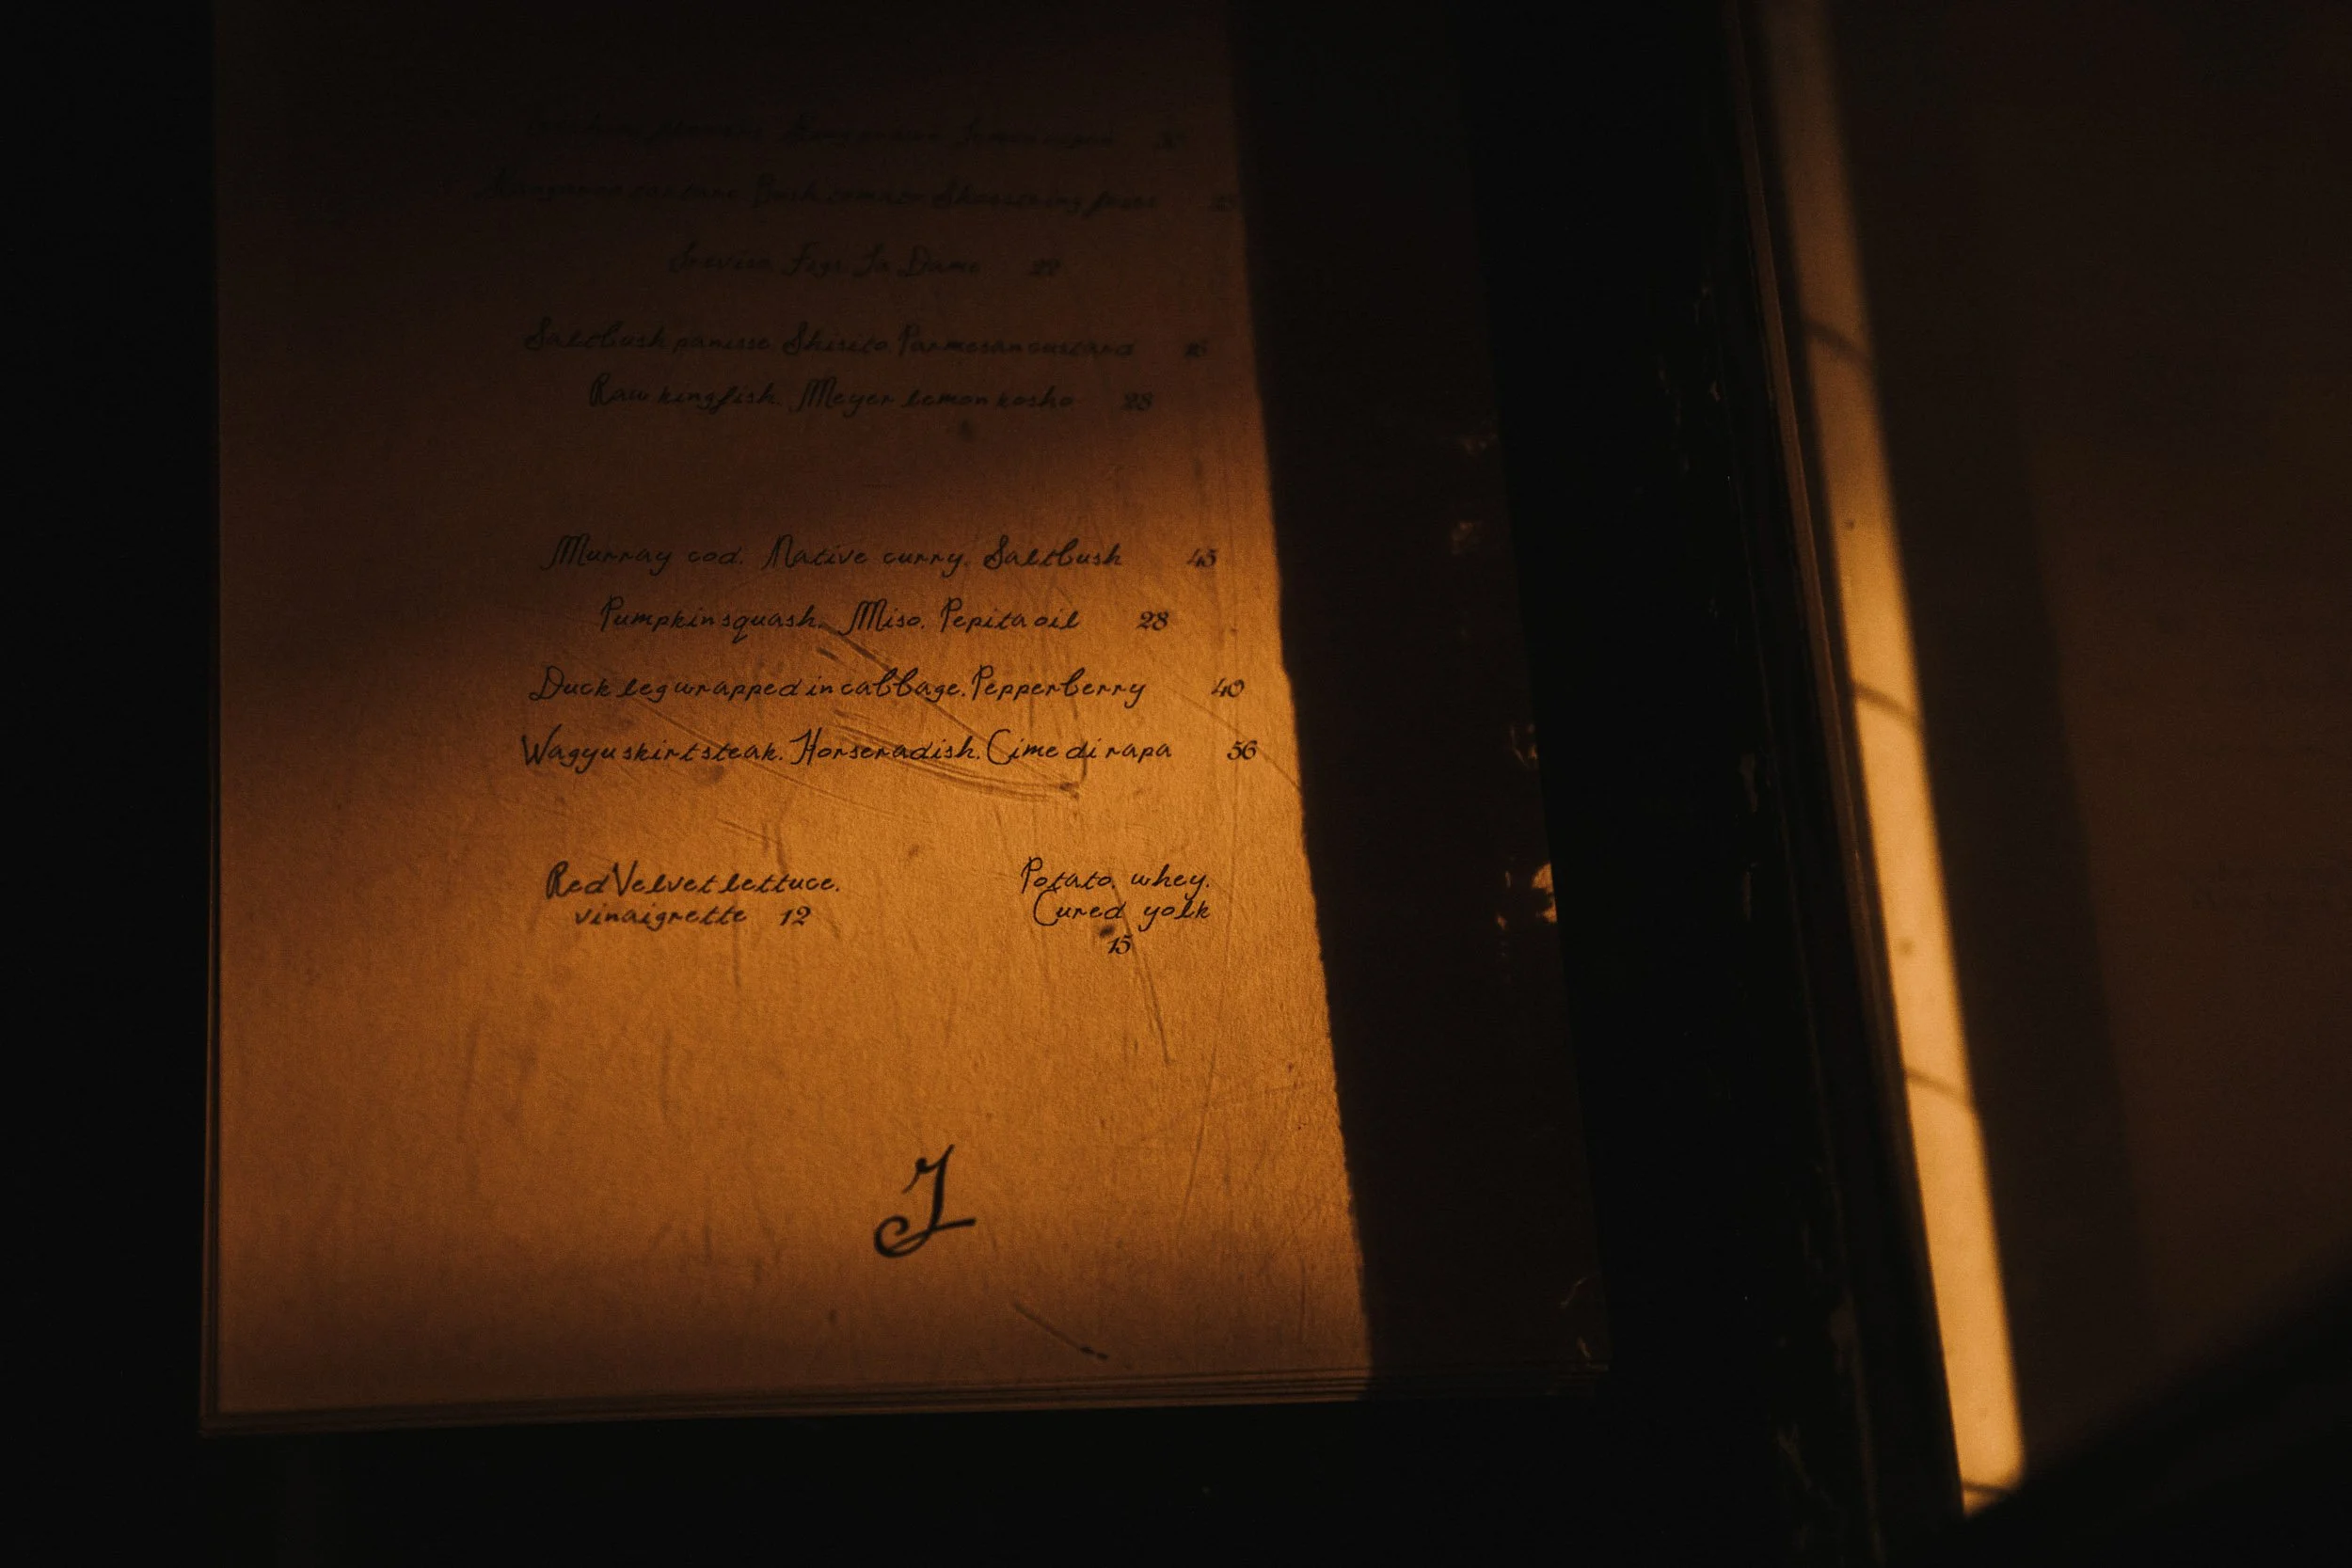 Treviso. Figs. La Dame 22
Saltbush panisse. Shisito. Parmesan custard 16
Raw kingfish. Meyer lemon kosho 28
Murray cod. Native curry. Saltbush 45
Pumpkin squash. Miso. Pepita oil 28
Duck leg wrapped in cabbage. Pepperberry 40
Wagyu skirt steak. Horseradish. Cime di rapa 56
Red Velvet lettuce.
vinaigrette 12
Potato. whey.
Cured yolk
15
J